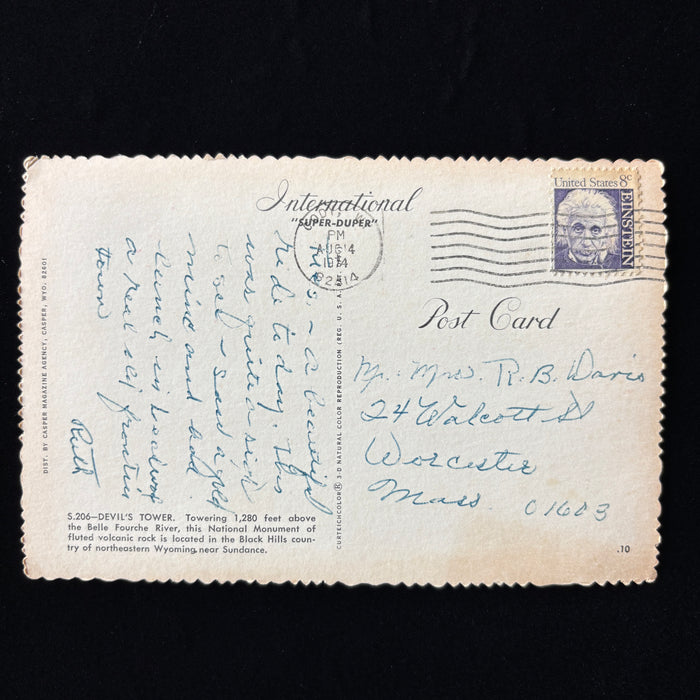 International
"SUPER-DUPER"
PM
AUG 4
1974
United States 8c
EINSTEIN
Post Card
Mr. Mrs. R. B. Davis
24 Walcott St
Worcester
Mass. 01603
a beautiful
ride today. This
was quite a sight
to see – Saw a gold
mine and had
lunch in Deadwood
a real old frontier
town
Ruth
S.206—DEVIL'S TOWER. Towering 1,280 feet above
the Belle Fourche River, this National Monument of
fluted volcanic rock is located in the Black Hills coun-
try of northeastern Wyoming near Sundance.
DIST. BY CASPER MAGAZINE AGENCY, CASPER, WYO. 82601
CURTEICHCOLOR® 3-D NATURAL COLOR REPRODUCTION (REG. U. S. A.
.10